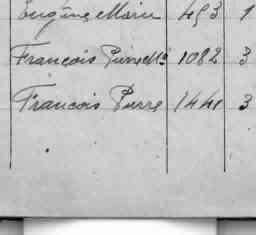 Eugène Marie 493 1
François Pierre Me 1082 3
Francois Pierre 1441 3